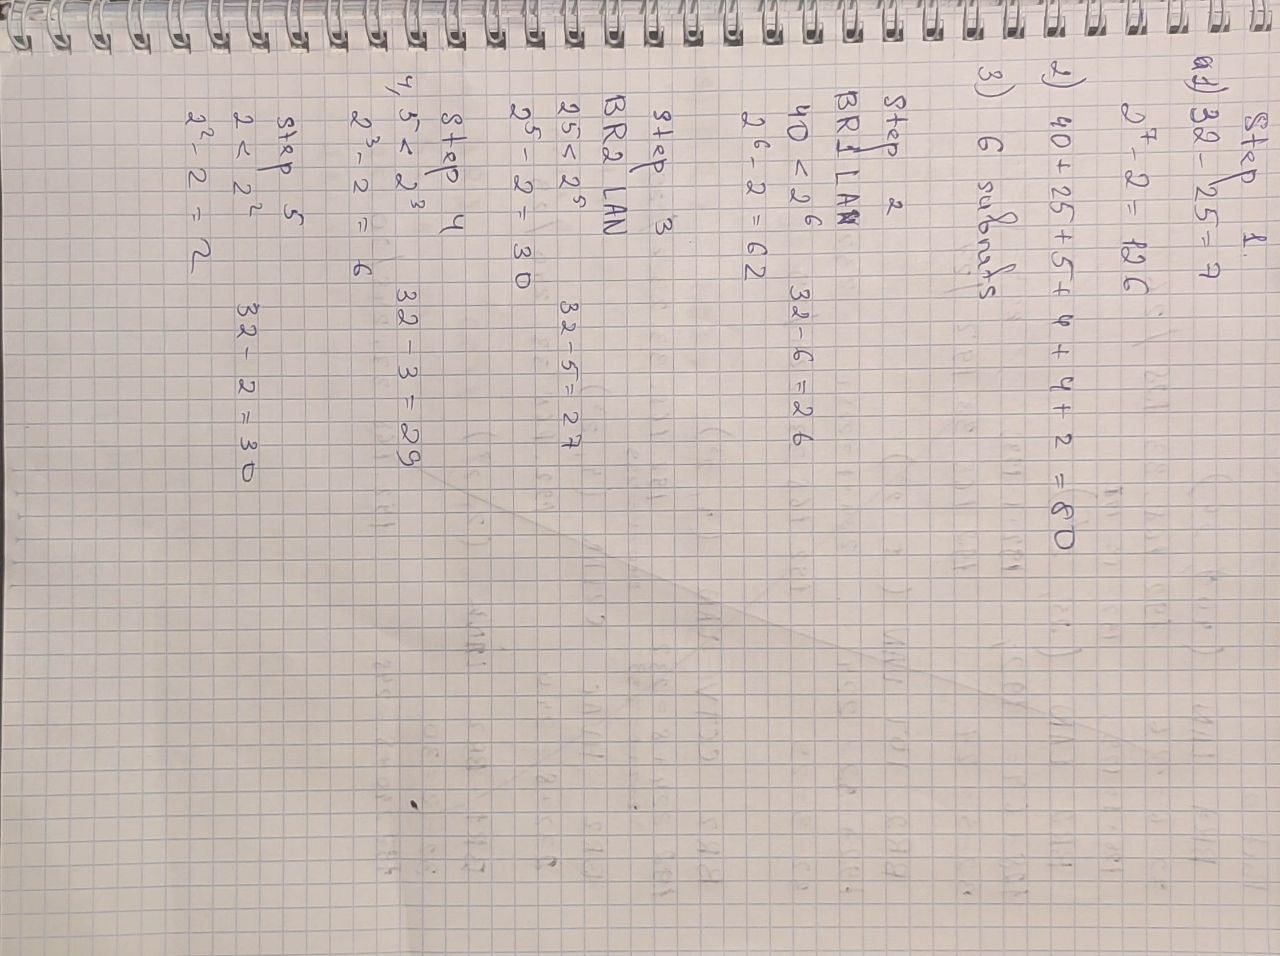 Step 1.
a1) 32 - 25 = 7
2⁷ - 2 = 126
2) 40 + 25 + 5 + 4 + 4 + 2 = 80
3) 6 subnets
Step 2
BR1 LAN
40 < 2⁶ 32 - 6 = 26
2⁶ - 2 = 62
Step 3
BR2 LAN
25 < 2⁵ 32 - 5 = 27
2⁵ - 2 = 30
Step 4
4, 5 < 2³ 32 - 3 = 29
2³ - 2 = 6
Step 5
2 < 2² 32 - 2 = 30
2² - 2 = 2